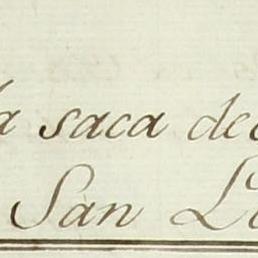 la saca de
San L